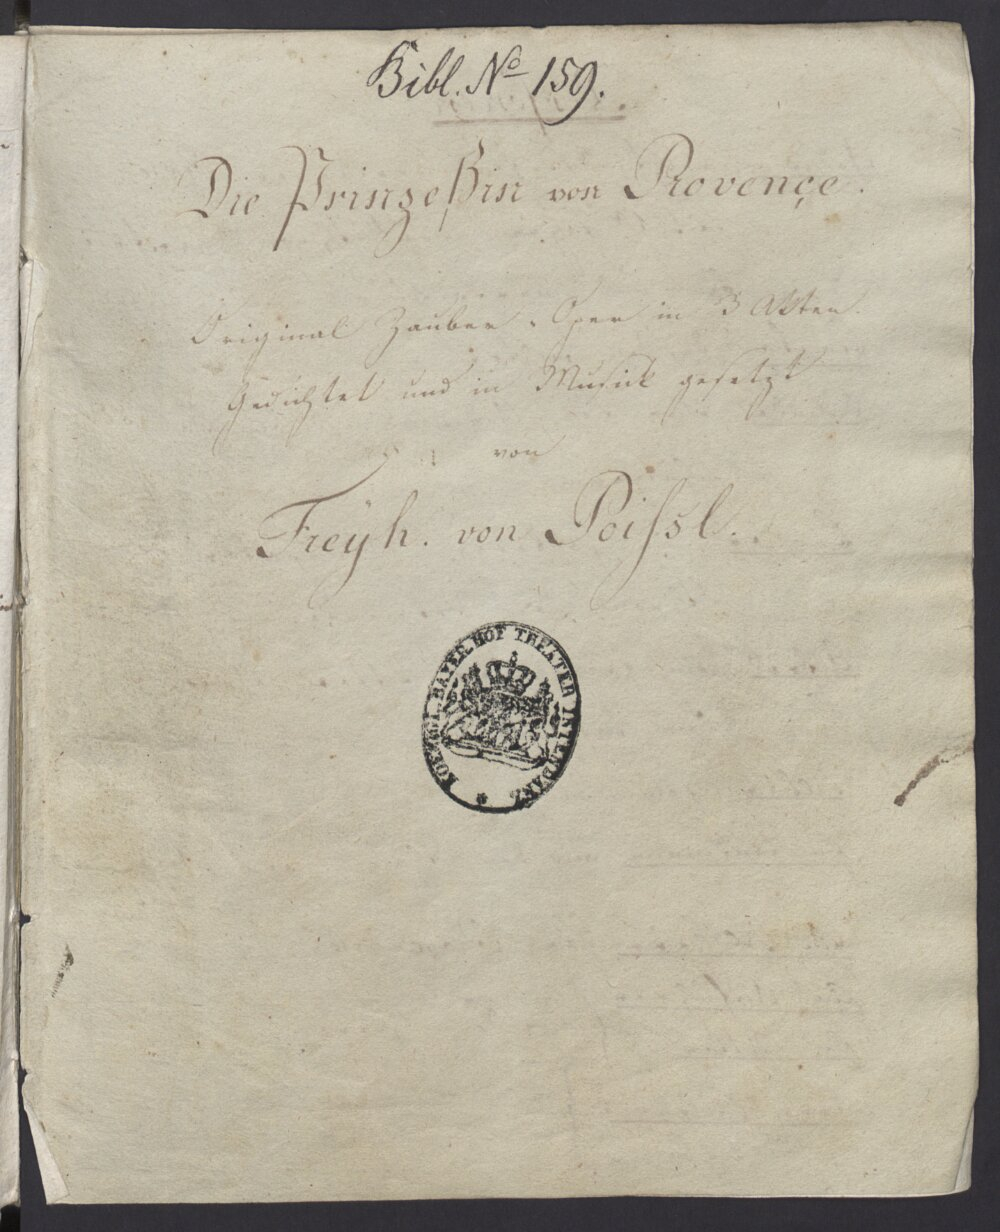 Bibl. No 159.
Die Prinzeßin von Provençe.
Original Zauber-Oper in 3 Akten.
Gedichtet und in Musick gesetzt
von
Freyh. von Poißl.
KOENIGL. BAYER. HOF THEATER INTENDANZ